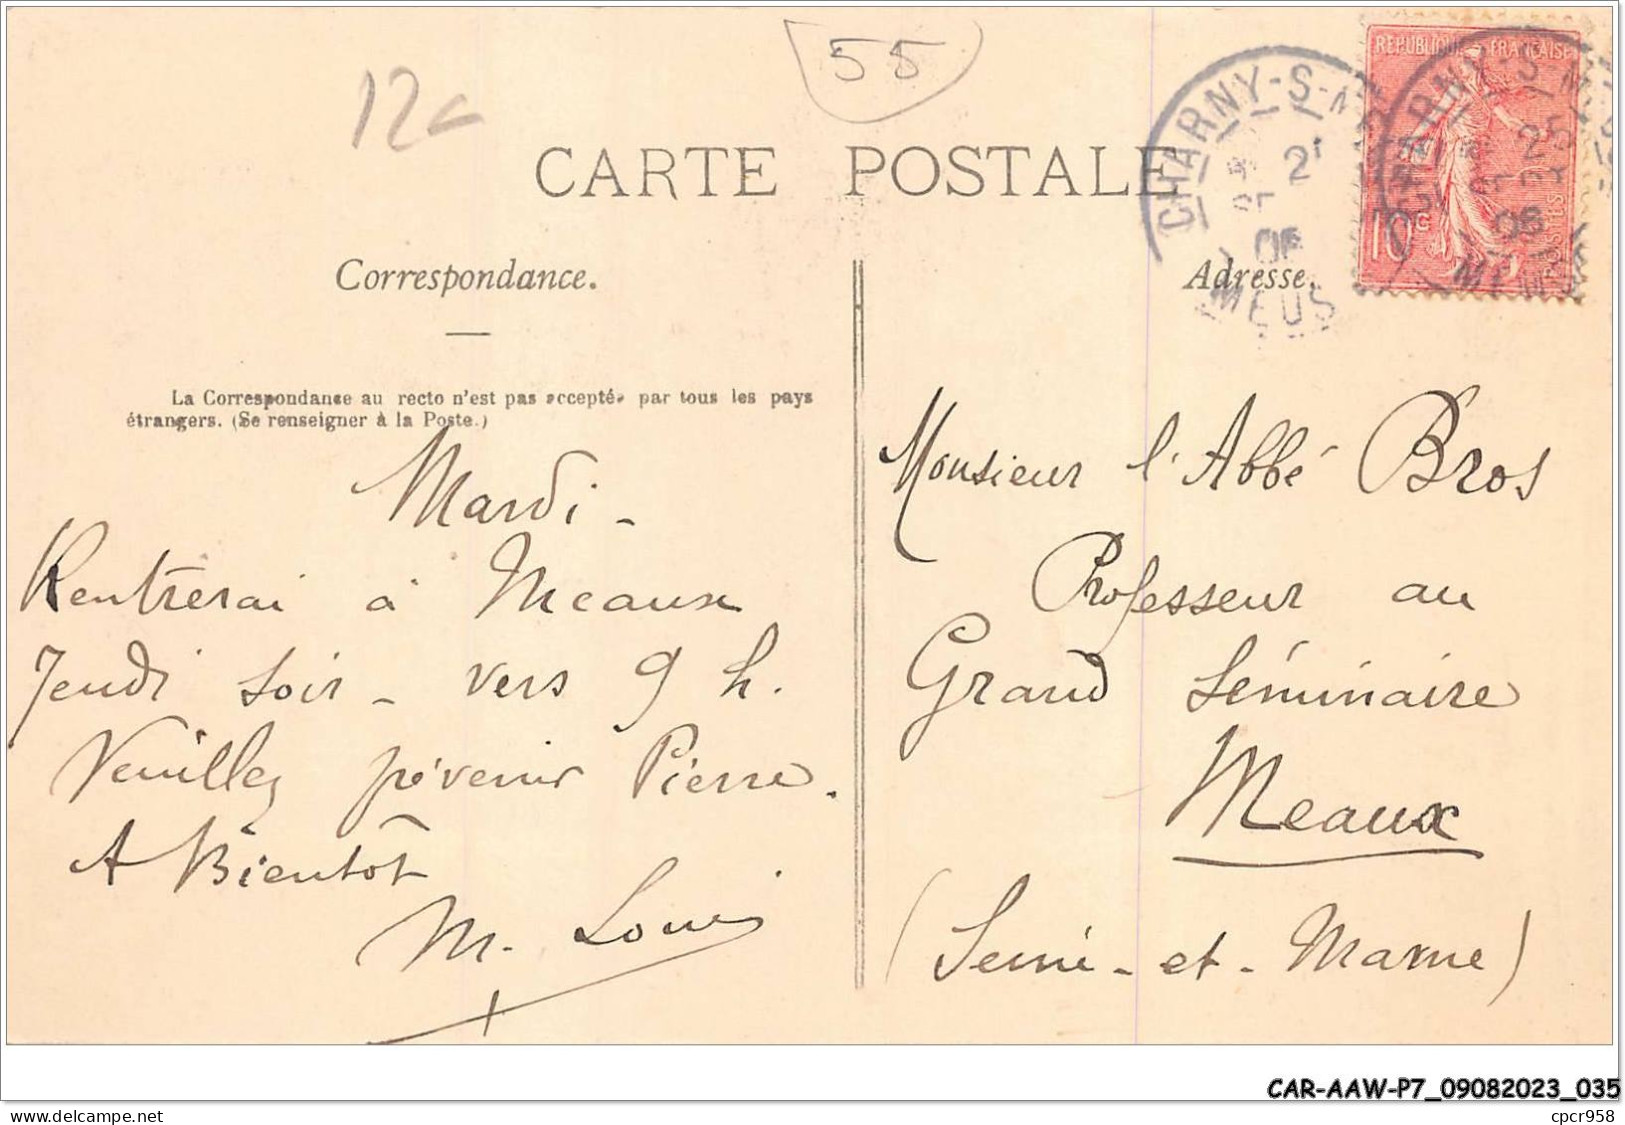 12
55
CARTE POSTALE
CHARNY-S-M
MEUS
REPUBLIQUE FRANÇAISE
10c
POSTES
CHARNY-S-M
25
06
Correspondance.
Adresse.
La Correspondance au recto n'est pas acceptée par tous les pays
étrangers. (Se renseigner à la Poste.)
Mardi -
Rentrerai à Meaux
Jeudi soir - vers 9 h.
Veuillez prévenir Pierre.
A Bientôt
M. Louis
Monsieur l'Abbé Bros
Professeur au
Grand Séminaire
Meaux
(Seine-et-Marne)
CAR-AAW-P7_09082023_035
www.delcampe.net
cpcr958